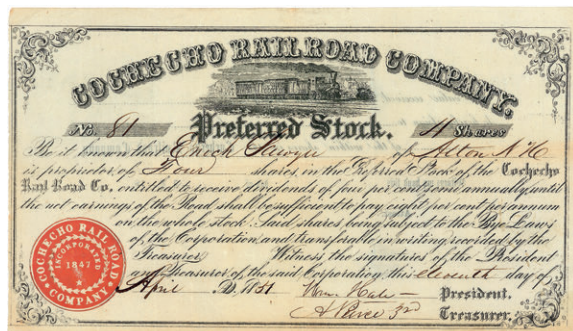 COCHECHO RAILROAD COMPANY.
No. 81 Preferred Stock. 4 Shares
Be it known that Enoch Sawyer of Alton N H
is proprietor of Four shares in the Preferred Stock of the Cochecho
Rail Road Co. entitled to receive dividends of four per cent semi annually, until
the net earnings of the Road shall be sufficient to pay eight per cent per annum
on the whole stock. Said shares being subject to the Bye Laws
of the Corporation, and transferable in writing recorded by the
Treasurer. Witness the signatures of the President
and Treasurer of the said Corporation, this eleventh day of
April D. 1851 Wm. Hale President.
3rd Treasurer.
COCHECHO RAIL ROAD COMPANY
INCORPORATED
1847